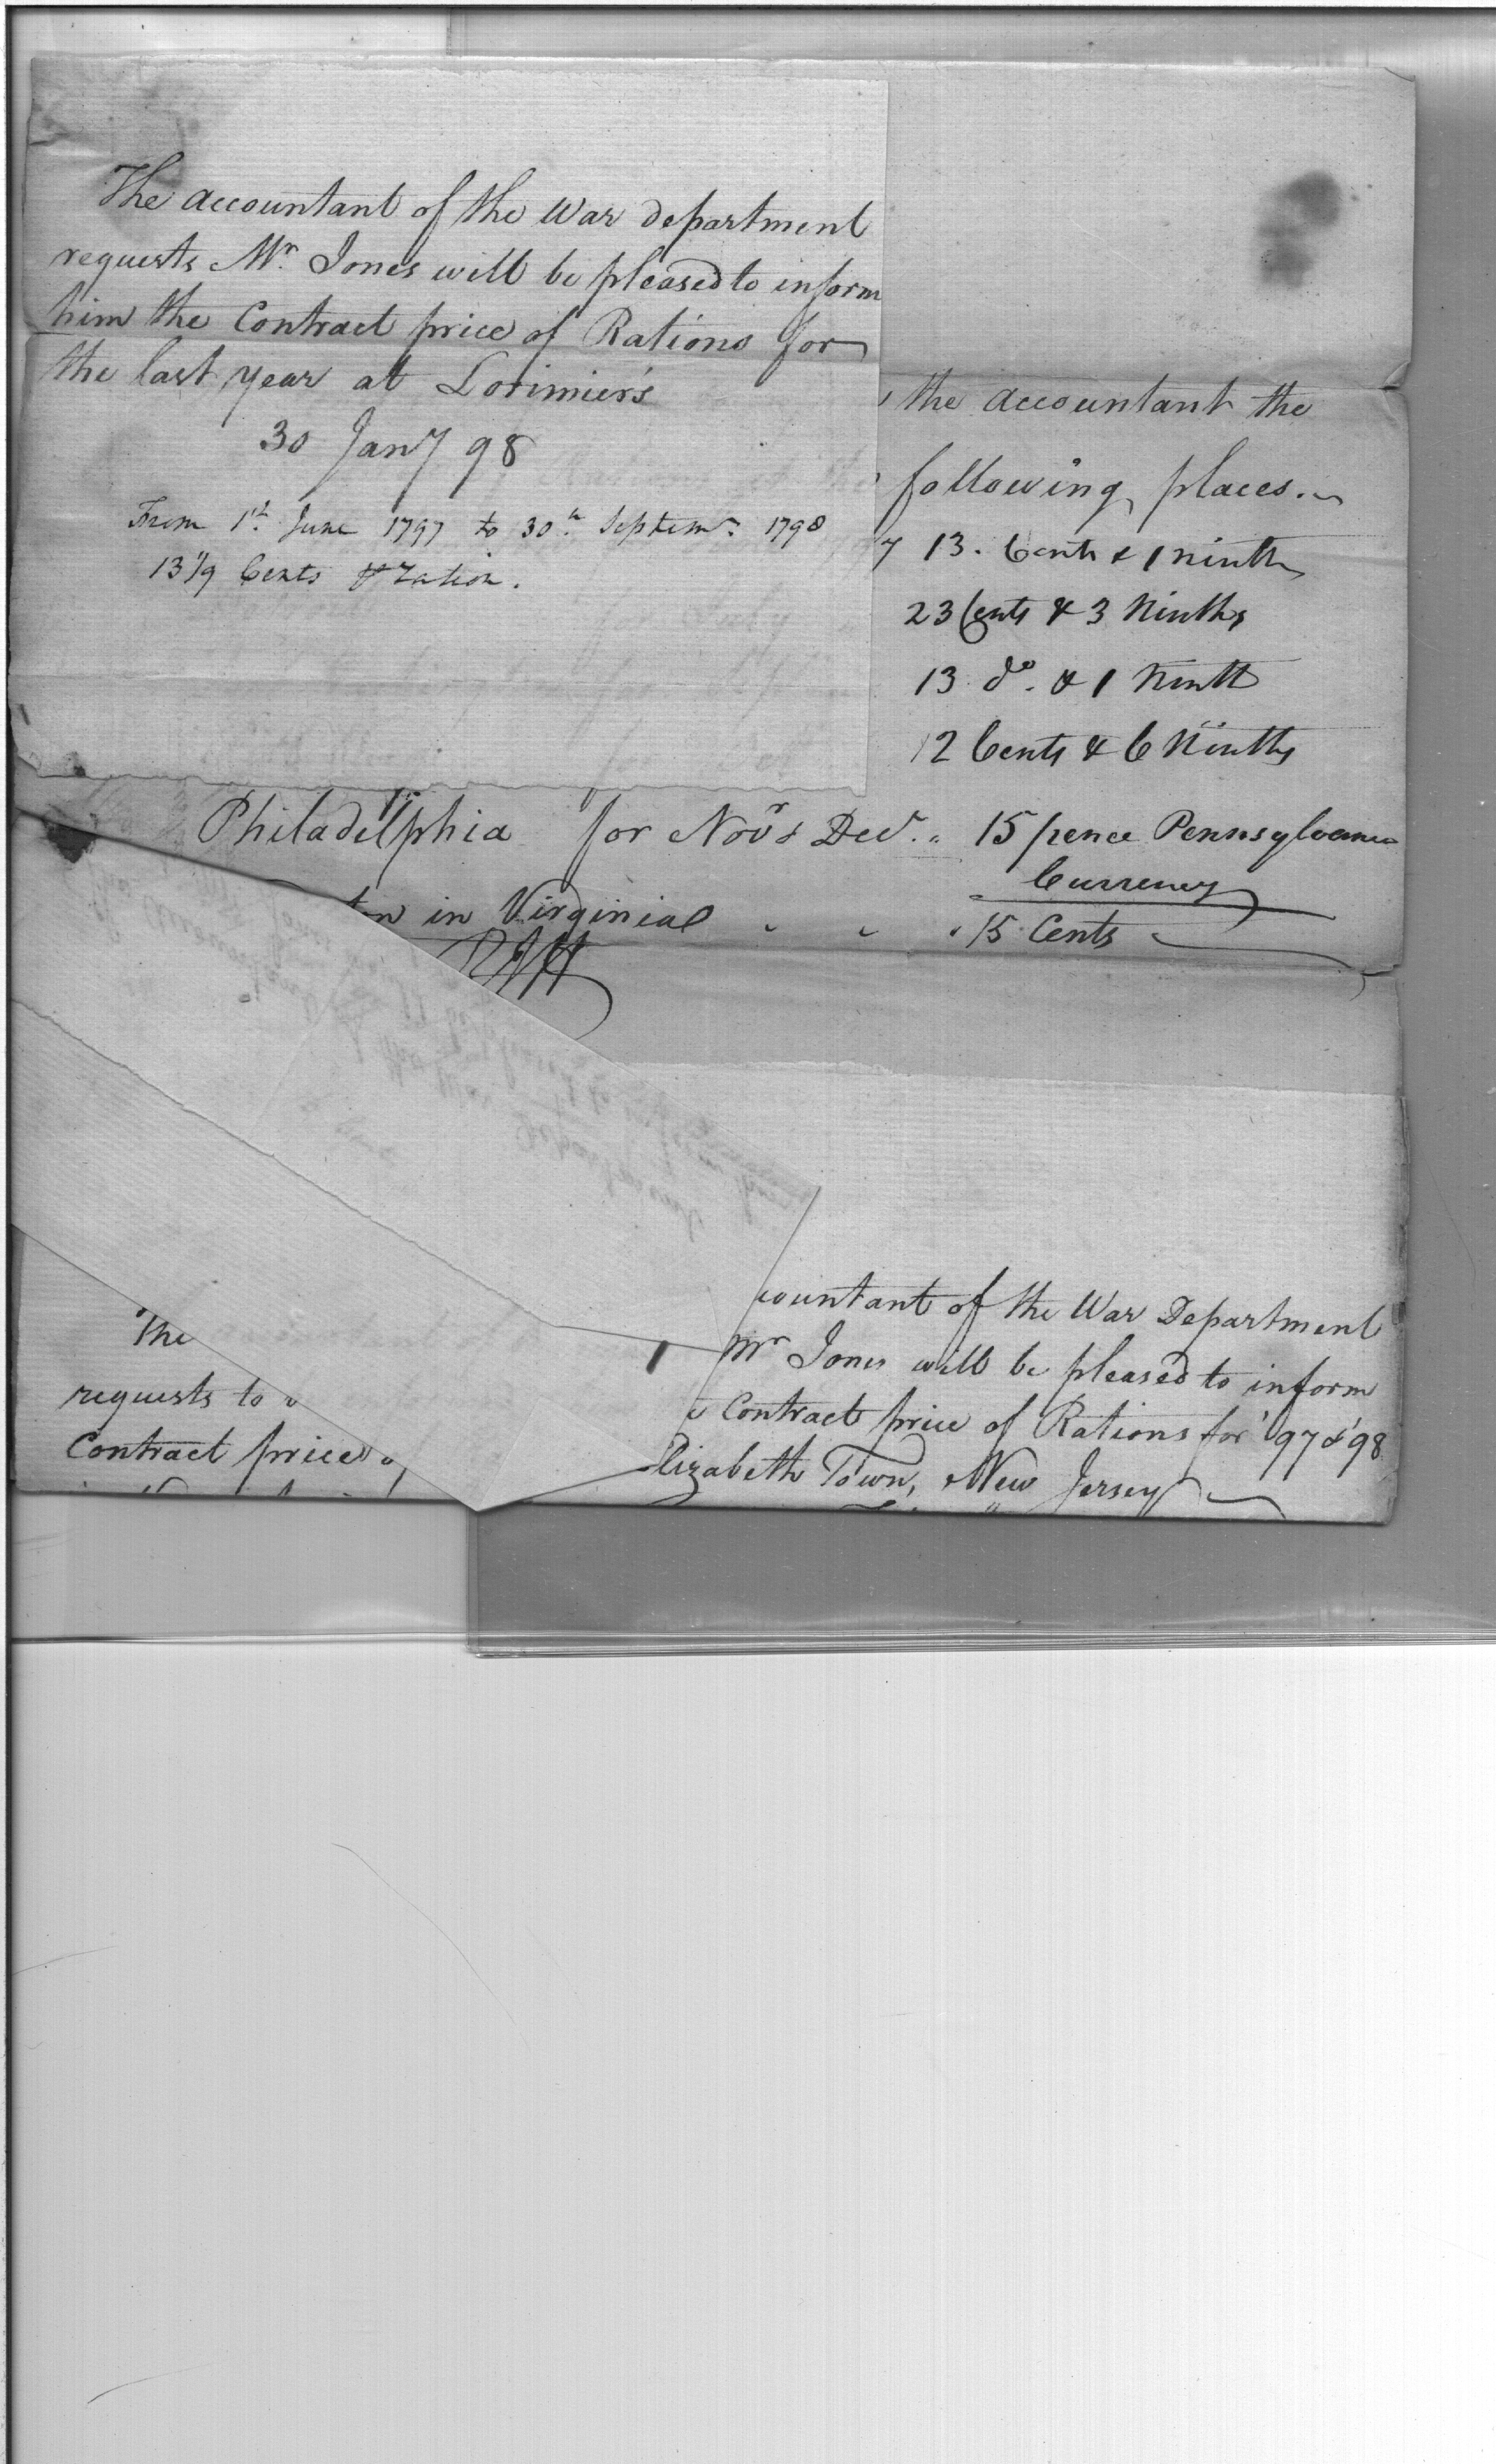 The accountant of the War department
requests Mr. Jones will be pleased to inform
him the Contract price of Rations for
the last year at Lorimier's
30 Jany 98
From 1st. June 1797 to 30th. Septemr. 1798
13 1/9 Cents ration.
the accountant the
following places.
13. Cents & 1 ninth
23 Cents & 3 Ninths
13 do. & 1 Ninth
12 Cents & 6 Ninths
Philadelphia for Novr & Decr. " 15 pence Pennsylvania
Currency
in Virginia " " " 15 Cents
countant of the War Department
Mr Jones will be pleased to inform
Contract price of Rations for '97 & '98
lizabeth Town, New Jersey
The
requests to
Contract price